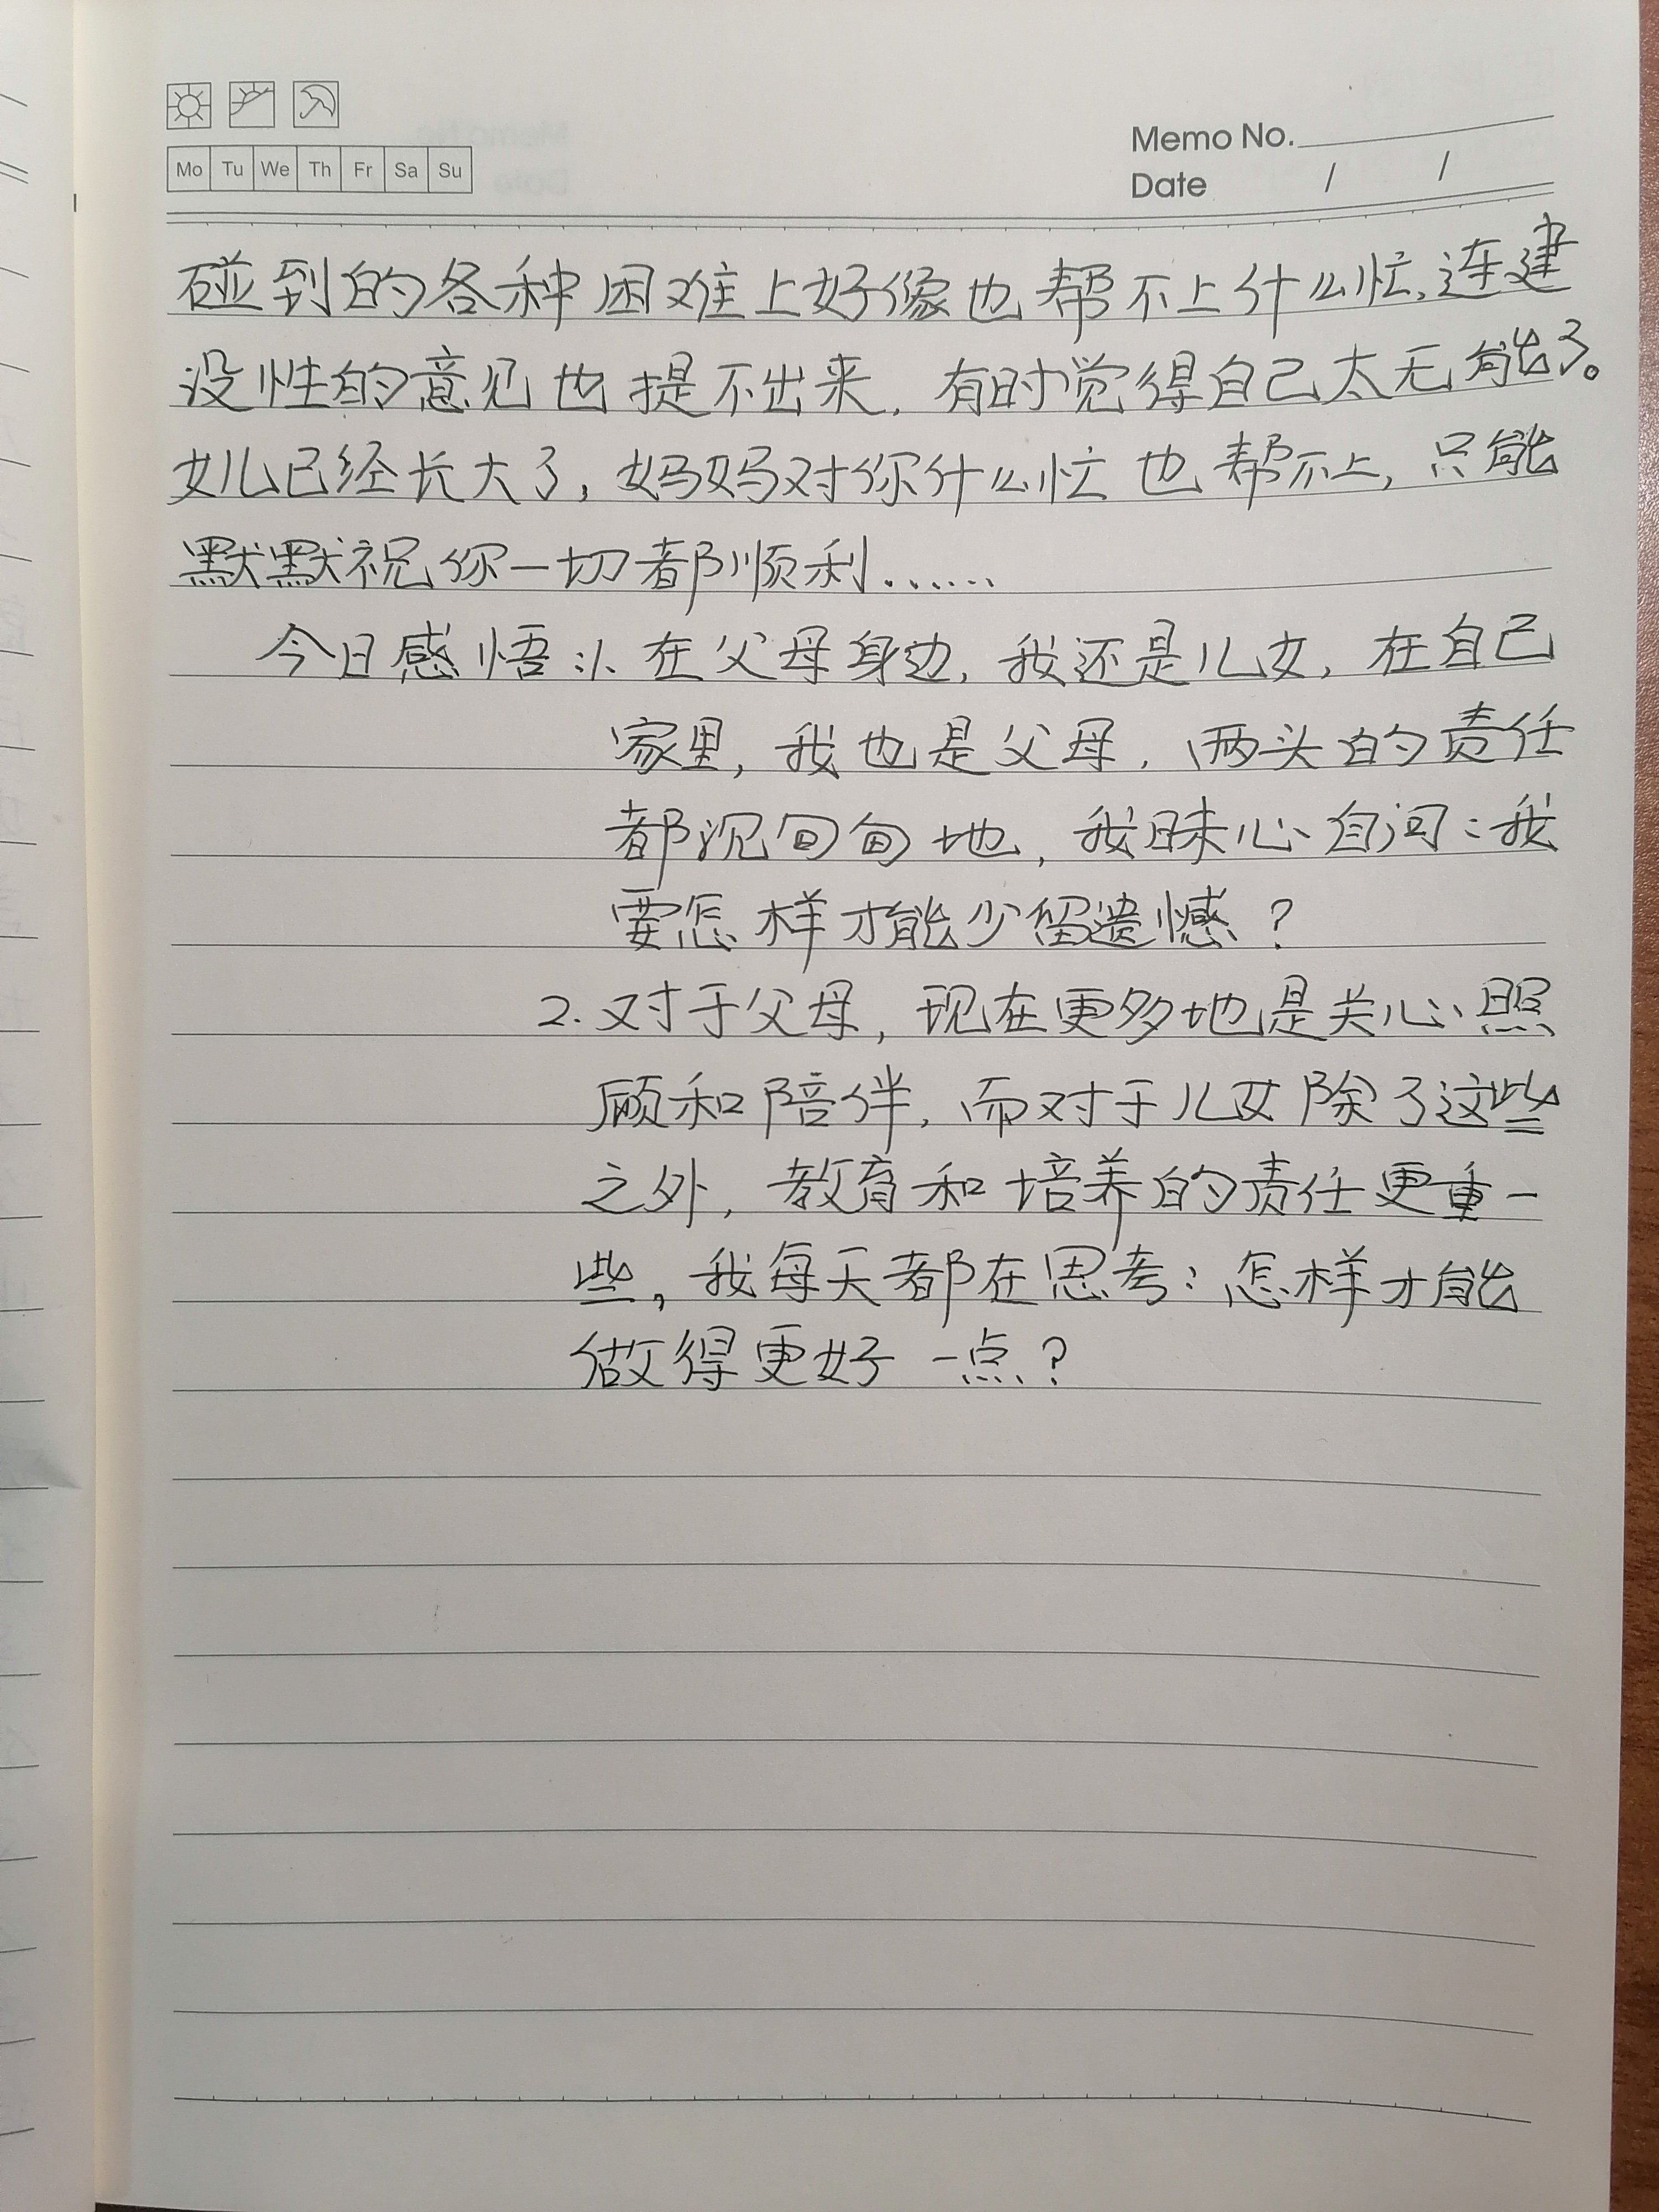 Mo Tu We Th Fr Sa Su
Memo No.
Date / /
碰到的各种困难上好像也帮不上什么忙,连建
设性的意见也提不出来,有时觉得自己太无能了。
女儿已经长大了,妈妈对你什么忙也帮不上,只能
默默祝你一切都顺利……
今日感悟:1.在父母身边,我还是儿女,在自己
家里,我也是父母,两头的责任
都沉甸甸地,我昧心自问:我
要怎样才能少留遗憾?
2.对于父母,现在更多地是关心照
顾和陪伴,而对于儿女除了这些
之外,教育和培养的责任更重一
些,我每天都在思考:怎样才能
做得更好一点?